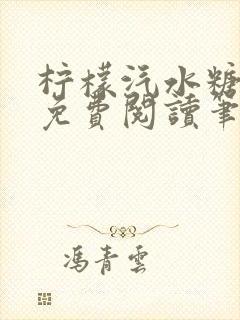 柠檬汽水糖
免費閱讀筆
馮青雲